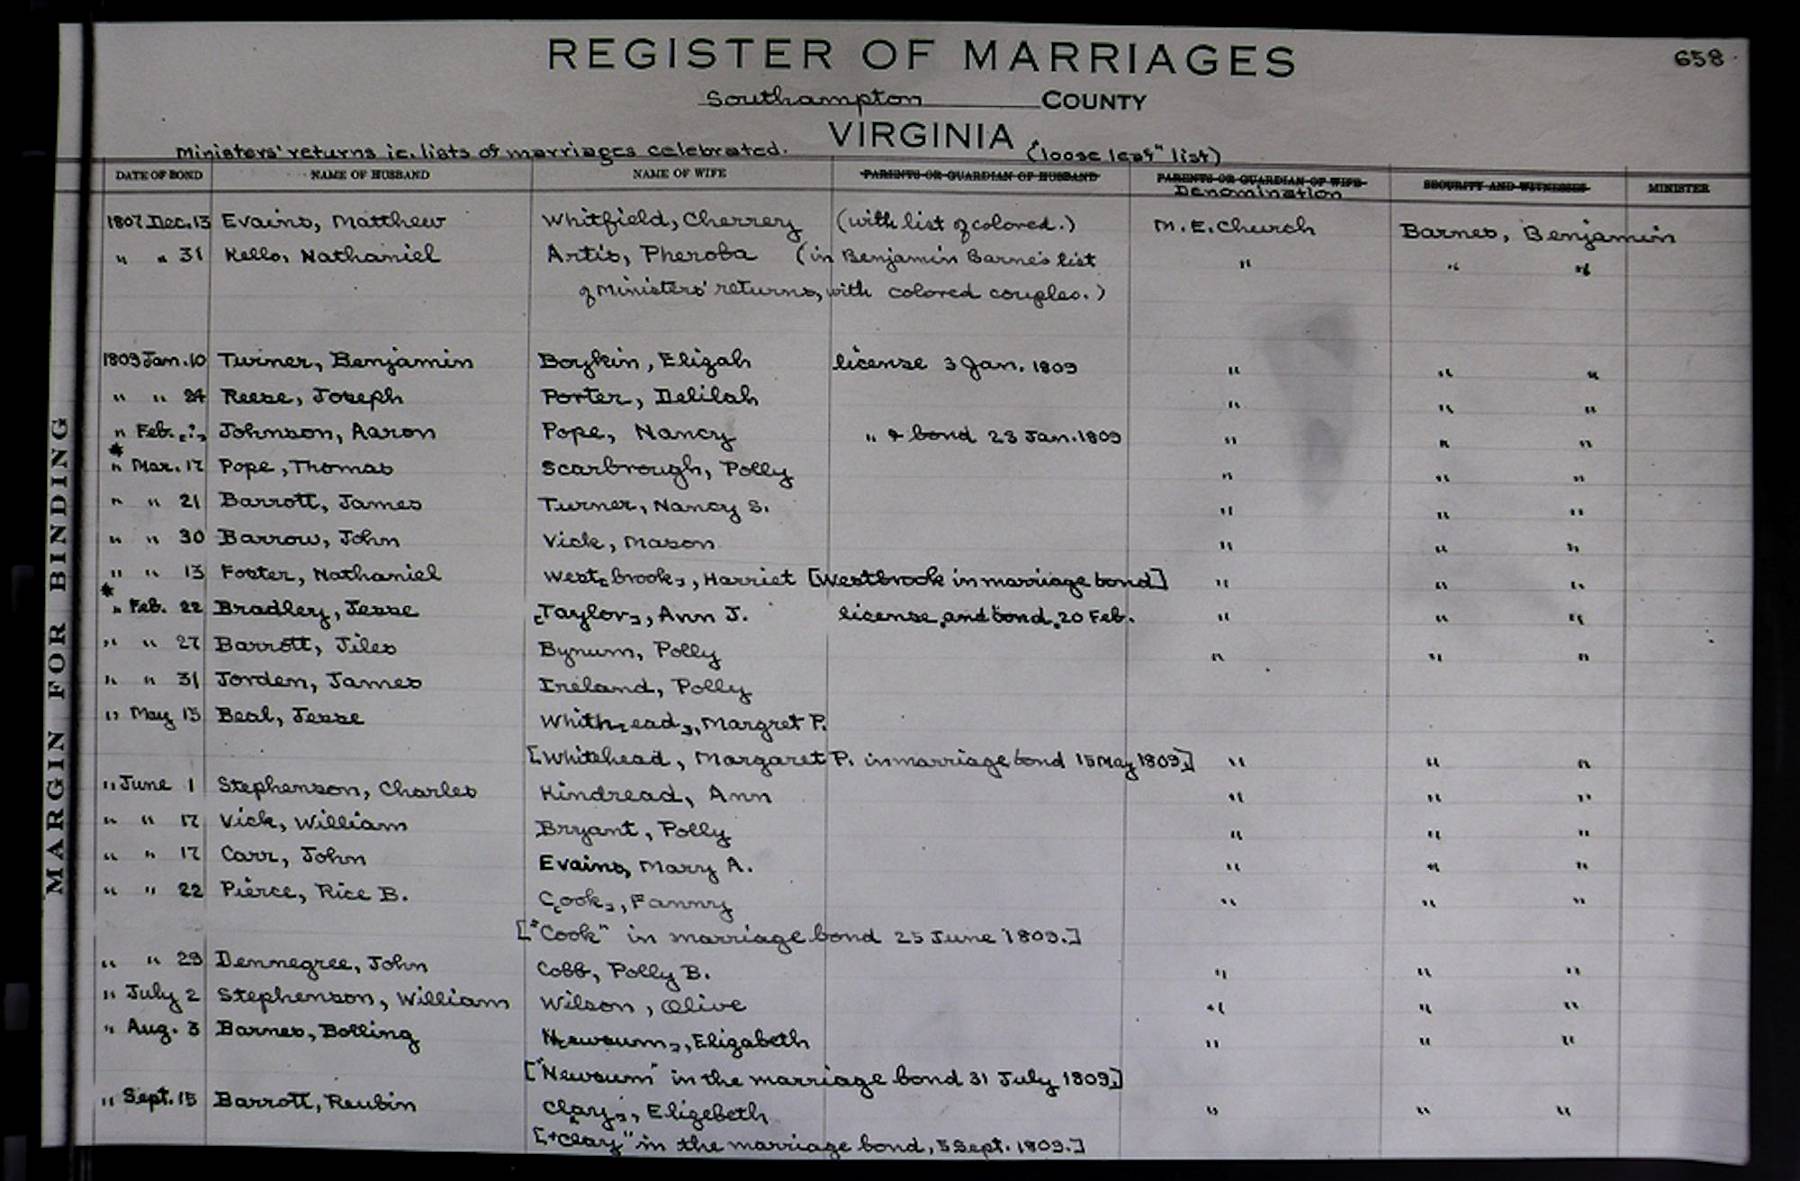 REGISTER OF MARRIAGES 658
Southampton COUNTY
VIRGINIA
Ministers' returns ie. lists of marriages celebrated. ("loose leaf" list)
DATE OF BOND NAME OF HUSBAND NAME OF WIFE PARENTS OR GUARDIAN OF HUSBAND PARENTS OR GUARDIAN OF WIFE SECURITY AND WITNESSES MINISTER
Denomination
1807 Dec. 13 Evains, Matthew Whitfield, Cherrery (with list of colored.) M. E. Church Barnes, Benjamin
" " 31 Kello, Nathaniel Artis, Pheroba (in Benjamin Barne's list " " "
of Ministers' returns, with colored couples.)
1809 Jan. 10 Turner, Benjamin Boykin, Elizah license 3 Jan. 1809 " " "
" " 24 Reese, Joseph Porter, Delilah " " "
" Feb. [?] Johnson, Aaron Pope, Nancy " & bond 23 Jan. 1809 " " "
* " Mar. 17 Pope, Thomas Scarbrough, Polly " " "
" " 21 Barrott, James Turner, Nancy S. " " "
" " 30 Barrow, John Vick, Mason " " "
" " 13 Foster, Nathaniel West[brook], Harriet [Westbrook in marriage bond] " " "
* " Feb. 22 Bradley, Jesse [Taylor], Ann J. license and bond 20 Feb. " " "
" " 27 Barrott, Jiles Bynum, Polly " " "
" " 31 Jorden, James Ireland, Polly
" May 15 Beal, Jesse Whith[ead], Margret P.
[Whitehead, Margaret P. in marriage bond 15 May 1809.] " " "
" June 1 Stephenson, Charles Kindread, Ann " " "
" " 17 Vick, William Bryant, Polly " " "
" " 17 Carr, John Evains, Mary A. " " "
" " 22 Pierce, Rice B. C[ook], Fannry " " "
["Cook" in marriage bond 25 June 1809.]
" " 29 Demnegree, John Cobb, Polly B. " " "
" July 2 Stephenson, William Wilson, Olive " " "
" Aug. 3 Barnes, Bolling N[ewsum], Elizabeth " " "
["Newsum" in the marriage bond 31 July 1809.]
" Sept. 15 Barrott, Reubin Cl[ay], Elizebeth " " "
["Clay" in the marriage bond, 5 Sept. 1809.]
MARGIN FOR BINDING